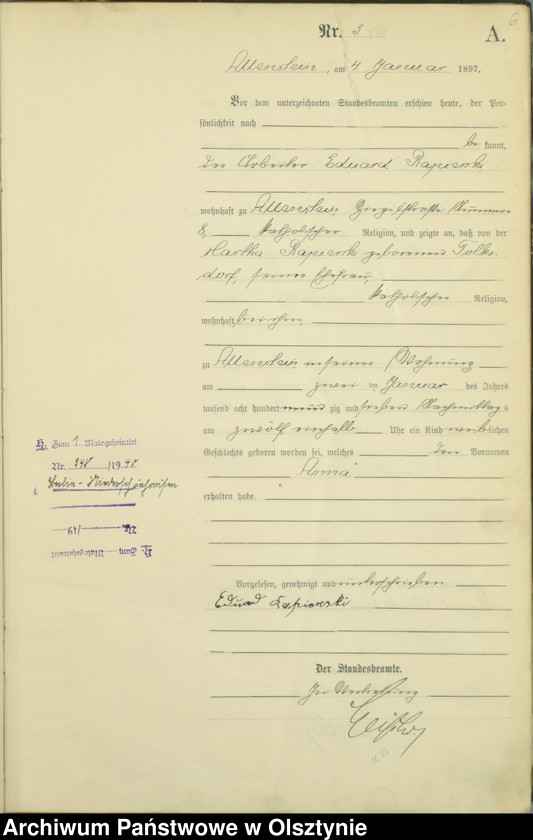 6
Nr. 5
A.
Allenstein, am 4 Januar 1897.
Vor dem unterzeichneten Standesbeamten erschien heute, der Per-
sönlichkeit nach
be kannt,
der Arbeiter Eduard Rapierski
wohnhaft zu Allenstein Ziegelstraße Nummer
8, katholischer Religion, und zeigte an, daß von der
Martha Rapierski geborenen Tolks-
dorf, seiner Ehefrau,
katholischer Religion,
wohnhaft bei ihm,
zu Allenstein in seiner Wohnung
am zwei ten Januar des Jahres
tausend acht hundert neun zig und sieben Nachmittags
um zwölf einhalb Uhr ein Kind weiblichen
Geschlechts geboren worden sei, welches den Vornamen
Anna
erhalten habe.
Vorgelesen, genehmigt und unterschrieben
Eduard
Der Standesbeamte.
In Vertretung
H. Zum 1 Male geheiratet
Nr. 248 /1940
Berlin-Niederschönhausen
H. Zum Male geheiratet
Nr. /19
Archiwum Państwowe w Olsztynie